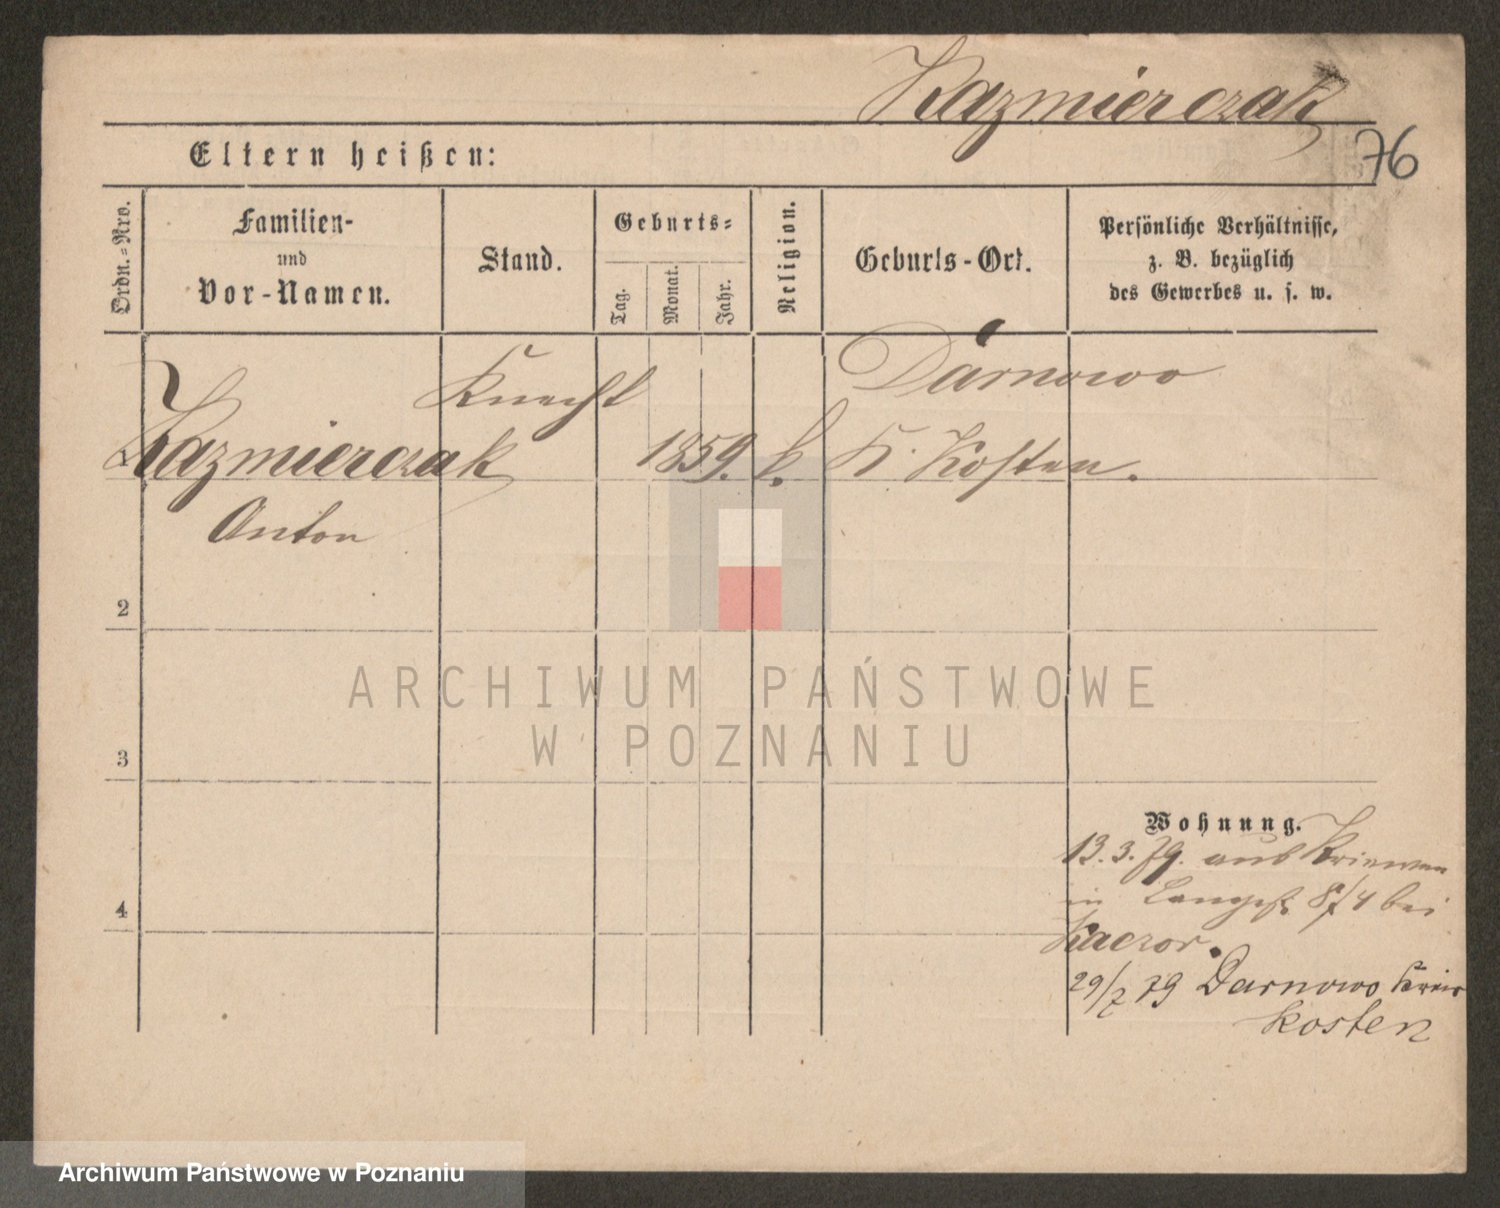 Kazmierczak
76
Eltern heißen:
Ordn.-Nro.
Familien-
und
Vor-Namen.
Stand.
Geburts-
Tag.
Monat.
Jahr.
Religion.
Geburts-Ort.
Persönliche Verhältnisse,
z. B. bezüglich
des Gewerbes u. s. w.
Knecht
Darnowo
Kazmierczak
1859.
k.
K. Kosten.
Anton
2
3
4
Wohnung.
13.3.79. aus Kriewen
in 8/4 bei
Kaczor.
29/7 79 Darnowo Kreis
Kosten
ARCHIWUM PAŃSTWOWE
W POZNANIU
Archiwum Państwowe w Poznaniu